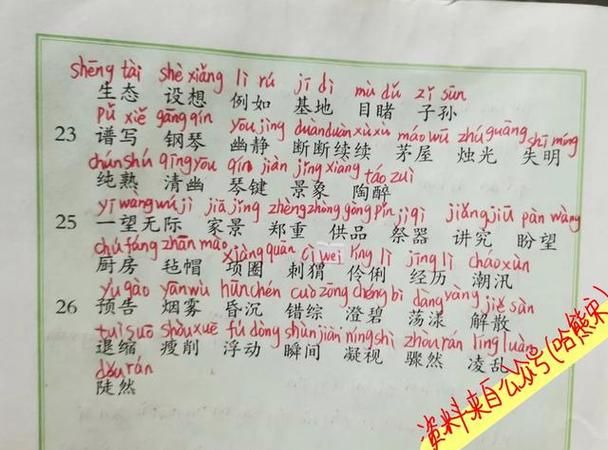 shēng tài shè xiǎng lì rú jī dì mù dǔ zǐ sūn
生态 设想 例如 基地 目睹 子孙
pǔ xiě gāng qín yōu jìng duànduàn xù xù máo wū zhú guāng shī míng
23 谱写 钢琴 幽静 断断续续 茅屋 烛光 失明
chún shú qīng yōu qín jiàn jǐng xiàng táo zuì
纯熟 清幽 琴键 景象 陶醉
yí wàng wú jì jiā jǐng zhèng zhòng gòng pǐn jì qì jiǎng jiū pàn wàng
25 一望无际 家景 郑重 供品 祭器 讲究 盼望
chú fáng zhān mào xiàng quān cì wei líng lì jīng lì cháo xùn
厨房 毡帽 项圈 刺猬 伶俐 经历 潮汛
yù gào yān wù hūn chén cuò zōng chéng bì dàng yàng jiě sàn
26 预告 烟雾 昏沉 错综 澄碧 荡漾 解散
tuì suō shòu xuē fú dòng shùn jiān níng shì zhòu rán líng luàn
退缩 瘦削 浮动 瞬间 凝视 骤然 凌乱
dǒu rán
陡然
资料来自公众号(哈熊宋)